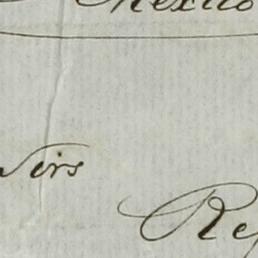 Mexico
Sirs
Re